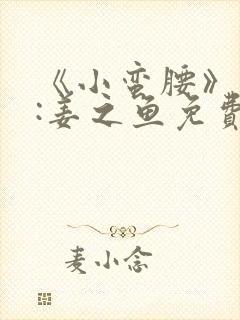 《小蛮腰》
:姜之鱼免費
麦小念